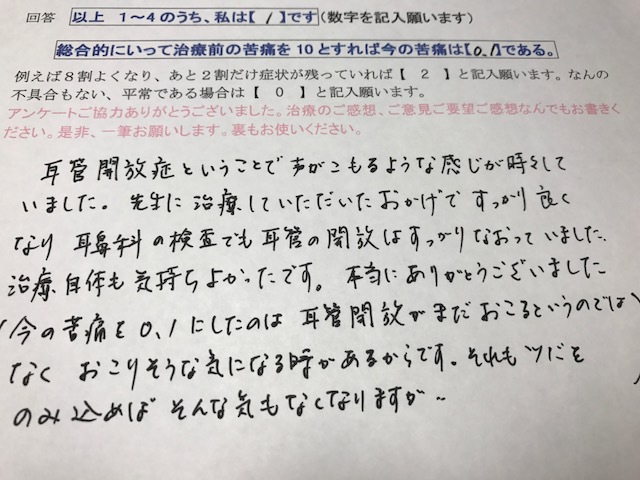 回答 以上 1～4のうち、私は【 1 】です(数字を記入願います)
総合的にいって治療前の苦痛を10とすれば今の苦痛は【0.1】である。
例えば8割よくなり、あと2割だけ症状が残っていれば【 2 】と記入願います。なんの
不具合もない、平常である場合は【 0 】と記入願います。
アンケートご協力ありがとうございました。治療のご感想、ご意見ご要望ご感想なんでもお書きく
ださい。是非、一筆お願いします。裏もお使いください。
耳管開放症ということで声がこもるような感じが時々して
いました。先生に治療していただいたおかげですっかり良く
なり耳鼻科の検査でも耳管の開放はすっかりなおっていました。
治療自体も気持ちよかったです。本当にありがとうございました
(今の苦痛を0.1にしたのは耳管開放がまだおこるというのでは
なくおこりそうな気になる時があるからです。それもツバを
のみ込めばそんな気もなくなりますが..)